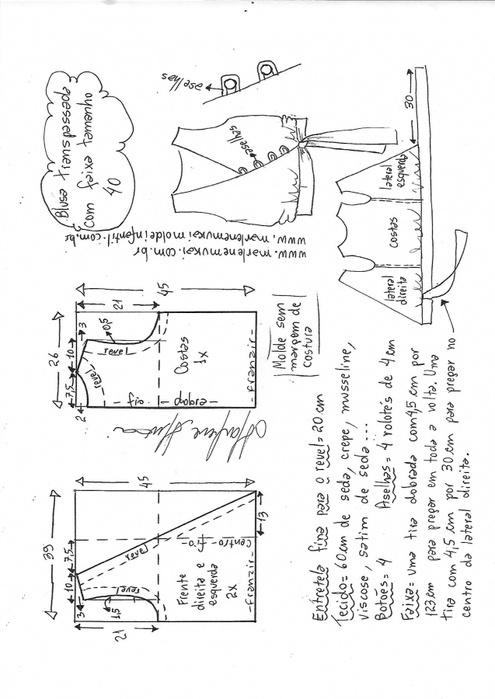 Blusa transpassada
com faixa tamanho
40
aselhas
aselhas
www.marlenemukai.com.br
www.marlenemukaimoldeinfantil.com.br
30
lateral
esquerda
costas
lateral
direita
26
7,5
10
3
2
0,5
21
45
revel
revel
Costas
1x
fio
dobra
franzir
Molde sem
margem de
costura
Marlene Mukai
39
10
7,5
3
1,5
21
45
13
revel
revel
Frente
direita e
esquerda
2x
Centro
fio
franzir
Entretela fina para o revel = 20 cm
Tecido = 60 cm de seda, crepe, musseline,
viscose, satim de seda ...
Botões = 4 Aselhas = 4 rolotês de 4 cm
Faixa = uma tira dobrada com 4,5 cm por
123 cm para pregar em toda a volta. Uma
tira com 4,5 cm por 30 cm para pregar no
centro da lateral direita.